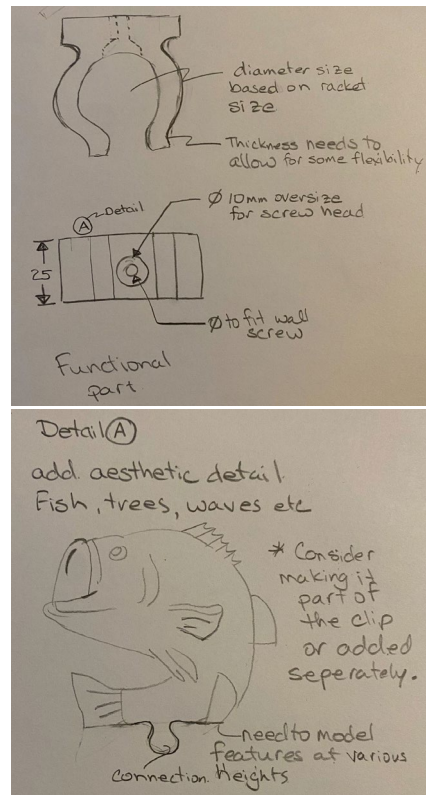 diameter size
based on racket
size
Thickness needs to
allow for some flexibility
Ø 10mm oversize
for screw head
Detail
A
25
Ø to fit wall
screw
Functional
part
Detail A
add aesthetic detail.
Fish, trees, waves etc
* Consider
making it
part of
the clip
or added
seperately.
need to model
features at various
Heights
Connection